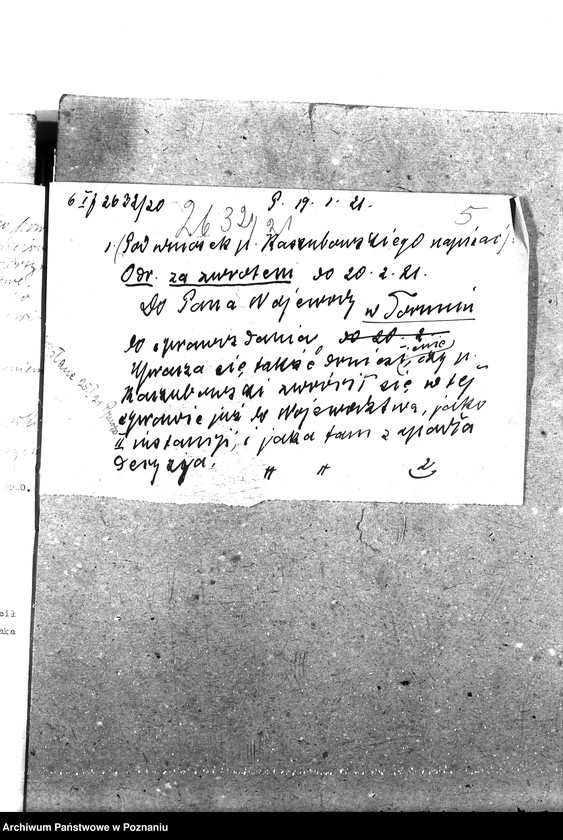 6 I j 2632/20 P. 19.1.21.
2632/21
5
1. (Pod wniosek p. Kaszubowskiego napisać):
Odr. za zwrotem do 20.2.21.
Do Pana Wojewody w Toruniu
do sprawozdania, do 20 2
Uprasza się także donieść, czy p.
Kaszubowski zwrócił się w tej
sprawie już do Województwa, jako
II instancji, i jaka tam zapadła
decyzja.
Archiwum Państwowe w Poznaniu